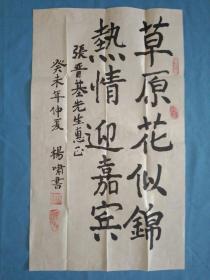 草原花似錦
熱情迎嘉宾
張晋基先生惠正
癸未年仲夏 楊嘯書